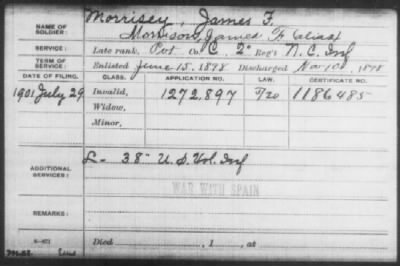 NAME OF SOLDIER: Morrisey, James F.
Morrison, James F. (alias)
SERVICE: Late rank, Pvt Co. C, 2" Reg't N.C. Inf
TERM OF SERVICE: Enlisted June 15, 1898 Discharged Nov 1898
DATE OF FILING. CLASS. APPLICATION NO. LAW. CERTIFICATE NO.
1901 July 29 Invalid, 1272,897 1186485
Widow,
Minor,
ADDITIONAL SERVICES: L- 38" U.S. Vol. Inf
WAR WITH SPAIN
REMARKS:
Died , 1 , at